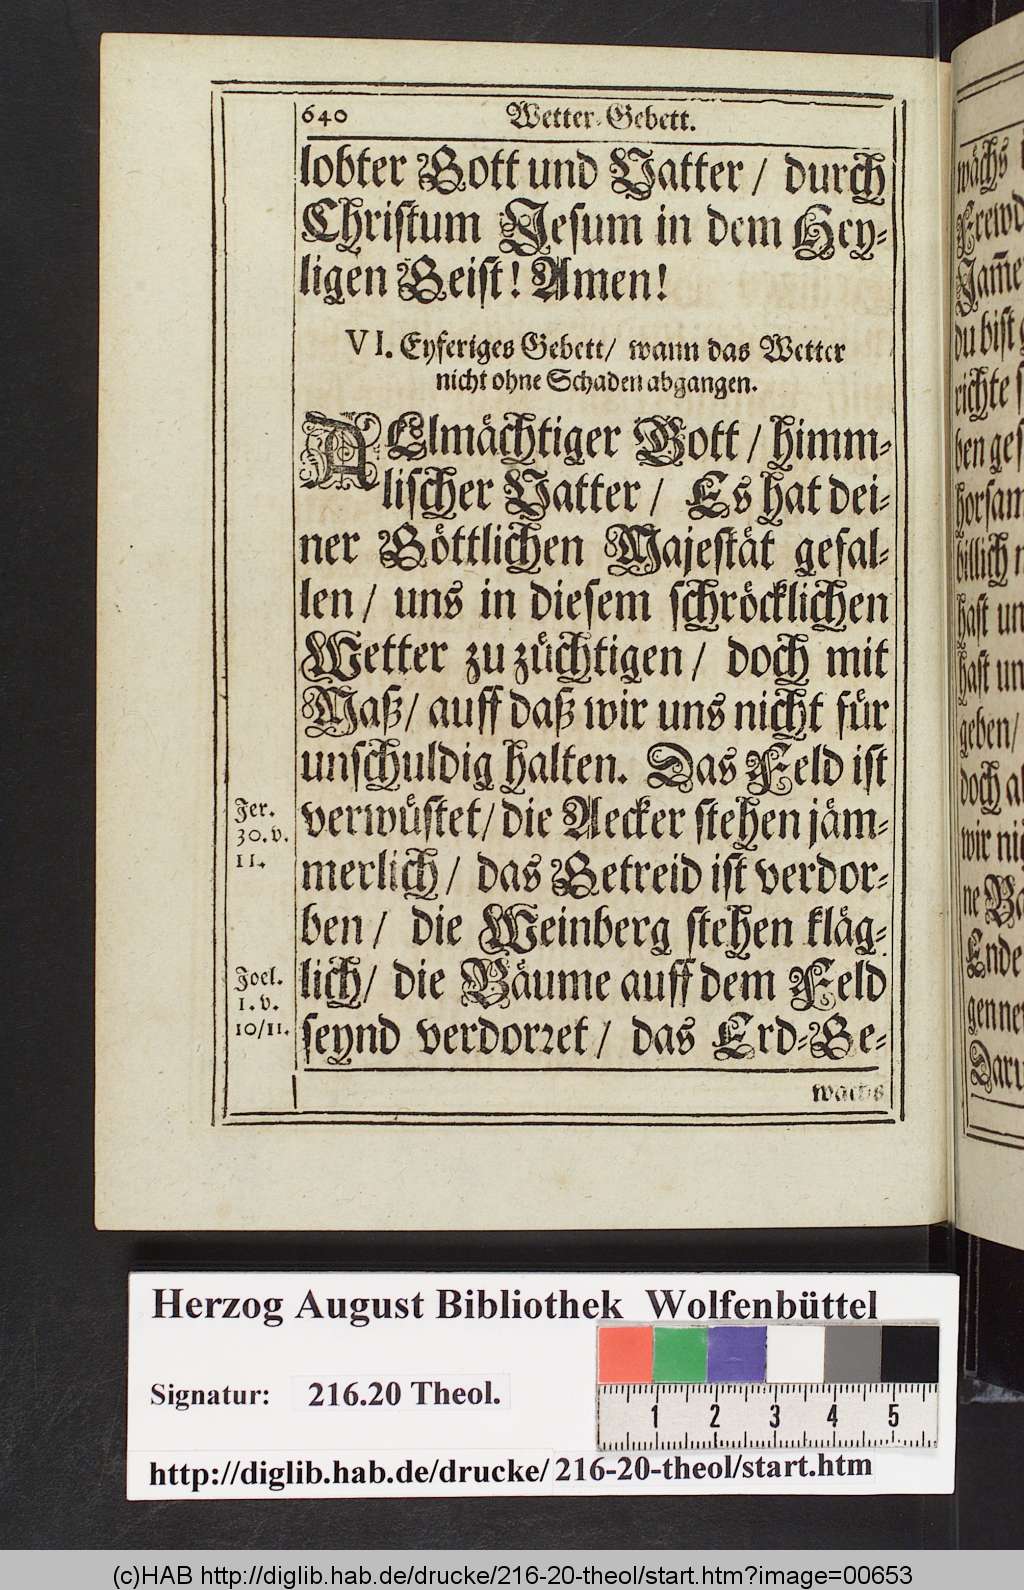 640 Wetter-Gebett.
lobter Gott und Vatter / durch
Christum Jesum in dem Hey-
ligen Geist! Amen!
VI. Eyferiges Gebett / wann das Wetter
nicht ohne Schaden abgangen.
ALlmächtiger Gott / himm-
lischer Vatter / Es hat dei-
ner Göttlichen Majestät gefal-
len / uns in diesem schröcklichen
Wetter zu züchtigen / doch mit
Maß / auff daß wir uns nicht für
unschuldig halten. Das Feld ist
verwüstet / die Aecker stehen jäm-
merlich / das Getreid ist verdor-
ben / die Weinberg stehen kläg-
lich / die Bäume auff dem Feld
seynd verdorret / das Erd-Ge-
wächs
Jer.
30. v.
11.
Joel.
1. v.
10/11.
wächs
Frewd
Jam̄er
du bist
richte
ben ges
horsam
billich
hast un
hast un
geben /
doch al
wir nic
ne
Ende
gen
Daru
Herzog August Bibliothek Wolfenbüttel
Signatur: 216.20 Theol.
1 2 3 4 5
http://diglib.hab.de/drucke/216-20-theol/start.htm
(c)HAB http://diglib.hab.de/drucke/216-20-theol/start.htm?image=00653